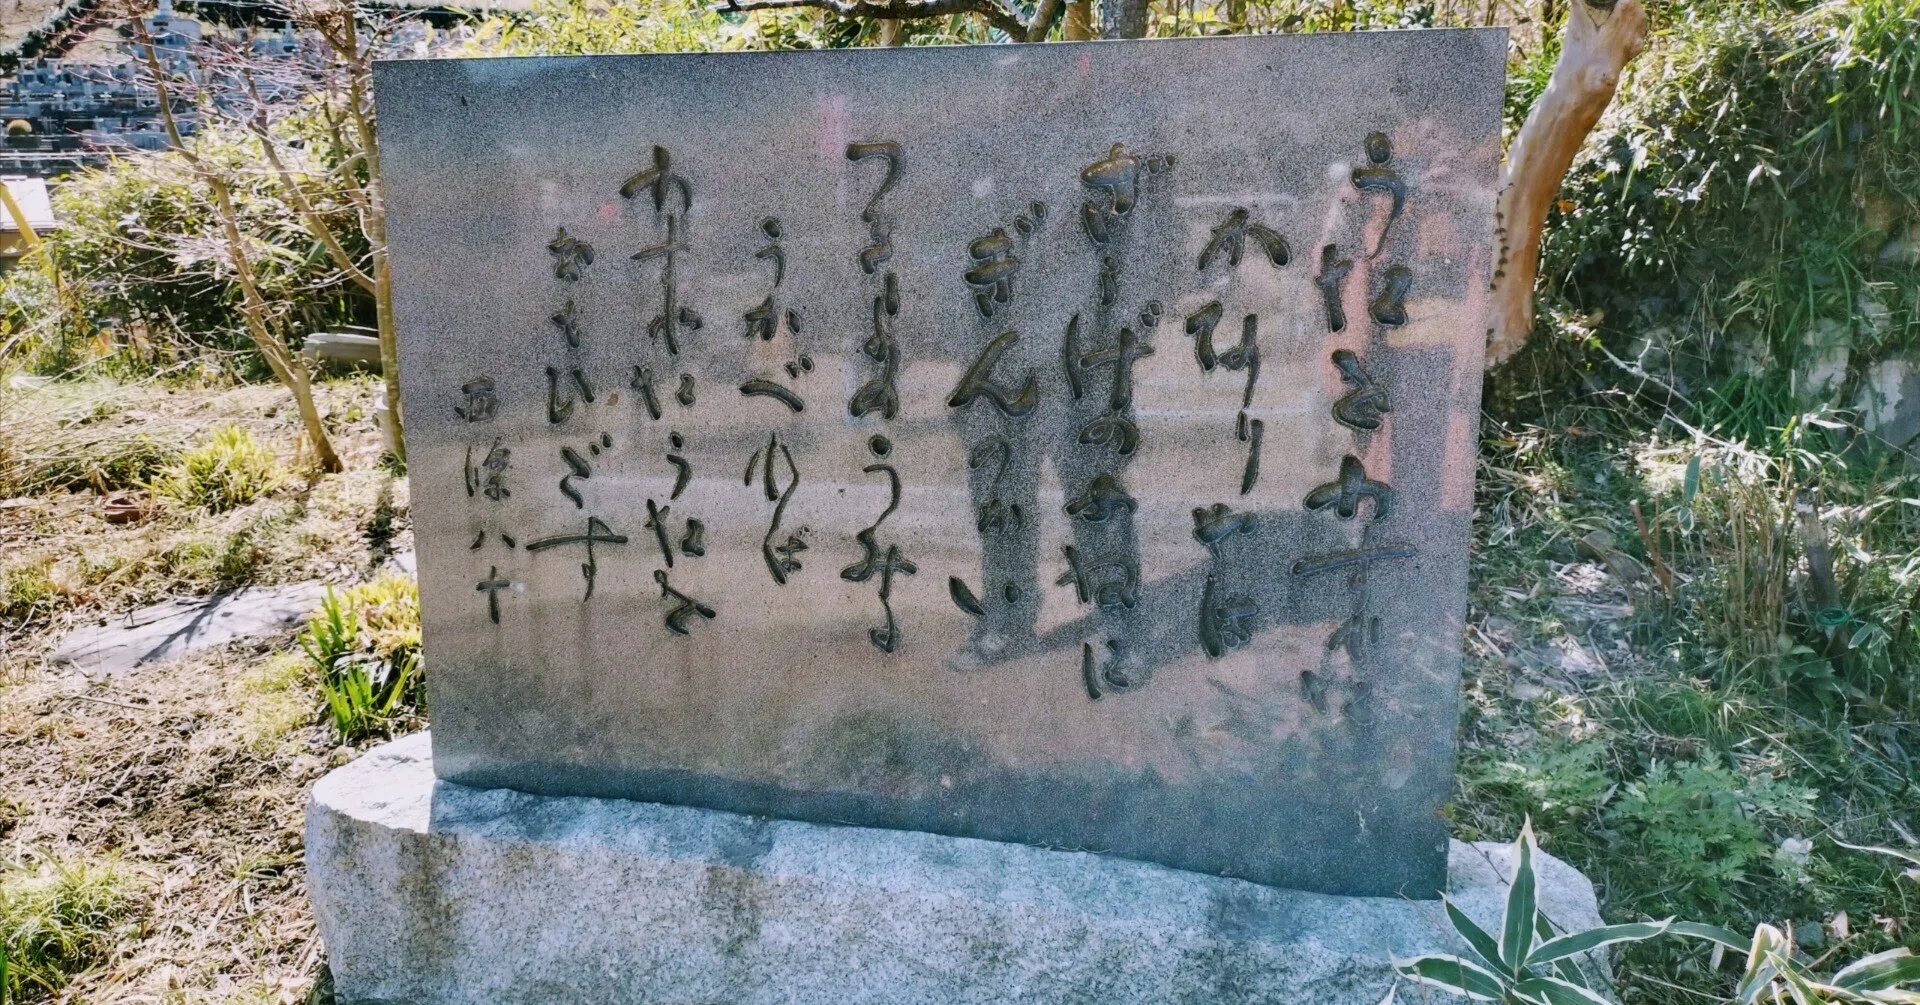 うたをわすれた
かなりやは
ざうげのふねに
ぎんのかい
つきよのうみに
うかべれば
わすれたうたを
おもひだす
西條八十